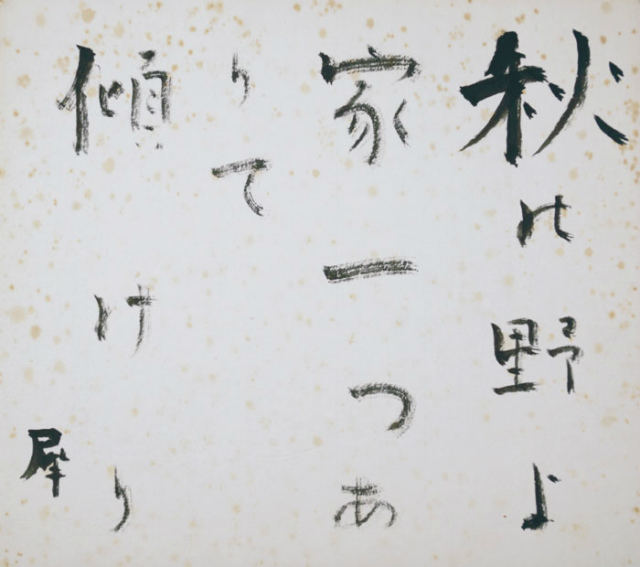 秋の野よ
家一つあ
りて
傾けり
犀